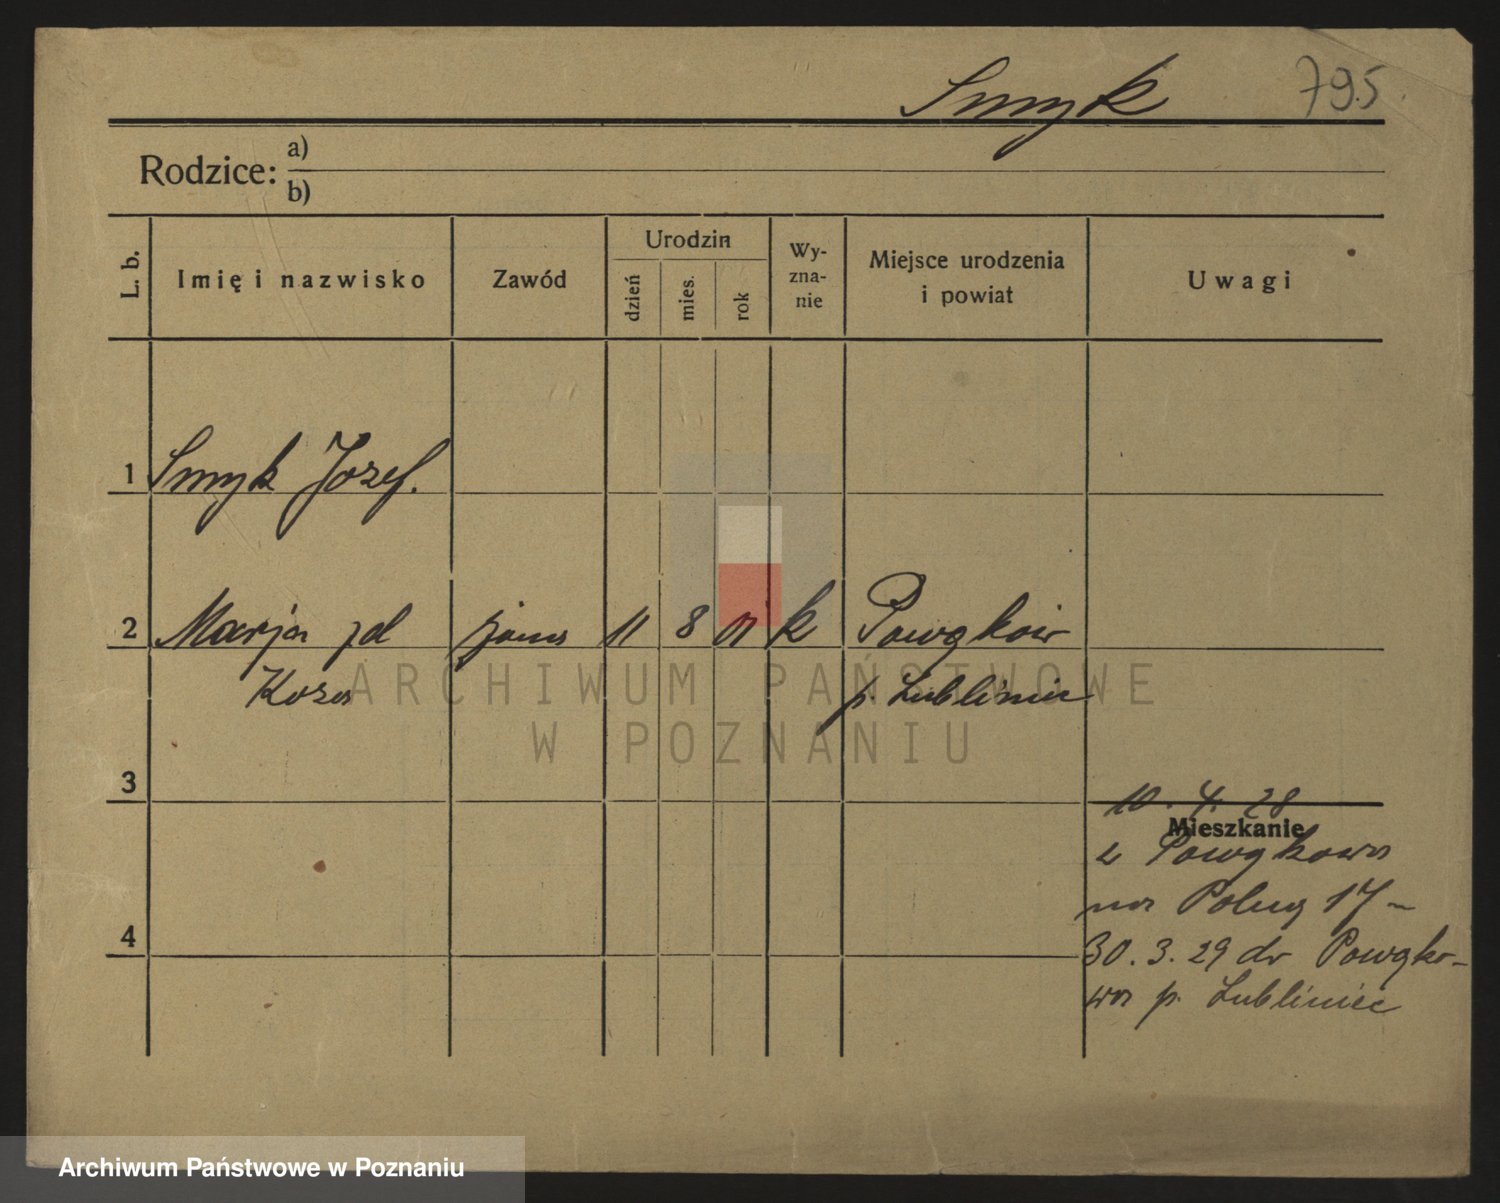 Smyk 795.
Rodzice: a)
b)
L. b. Imię i nazwisko Zawód Urodzin dzień mies. rok Wy-zna-nie Miejsce urodzenia i powiat Uwagi
1 Smyk Jozef.
2 Marja zd żona 11 8 01 k Pawąków
Koza p. Lubliniec
3
10. 4. 28
Mieszkanie
z Pawąkowa
na 17-
4
30. 3. 29 do Pawąko-
wa p. Lubliniec
ARCHIWUM PAŃSTWOWE
W POZNANIU
Archiwum Państwowe w Poznaniu